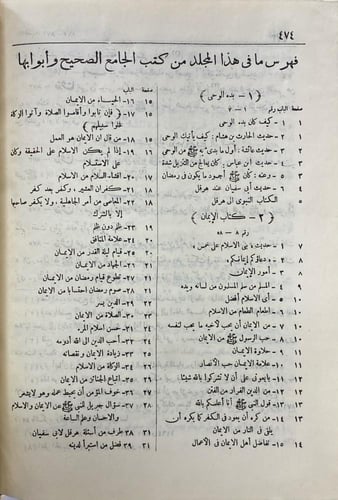 ٤٧٤
فهرس ما فى هذا المجلد من كتب الجامع الصحيح وأبوابها
صفحة الباب
(١ – بدء الوحى)
صفحة الباب رقم ١ – ٧
١ ١ - كيف كان بدء الوحى
٢ ٢ - حديث الحارث بن هشام: كيف يأتيك الوحى
٣ ٣ - حديث عائشة: أول ما بدئ
٥ ٤ - حديث ابن عباس: كان يعالج من التنزيل شدة
٦ ٥ - وعنه: كان ﷺ أجود ما يكون فى رمضان
٦ ٦ - حديث أبى سفيان عند هرقل
الكتاب النبوى الى هرقل
(٢ – كتاب الإيمان)
رقم ٨ – ٥٨
٧ ١ - حديث «بنى الاسلام على خمس»
٨ ٢ - دعاؤكم إيمانكم
٨ ٣ - أمور الإيمان
٨ ٤ - المسلم من سلم المسلمون من لسانه ويده
٩ ٥ - أى الاسلام أفضل
١٠ ٦ - إطعام الطعام من الاسلام
١٠ ٧ - من الايمان أن يحب لأخيه ما يحب لنفسه
١٠ ٨ - حب الرسول ﷺ من الايمان
١١ ٩ - حلاوة الايمان
١١ ١٠ - علامة الايمان حب الأنصار
١٢ ١١ - بايعونى على أن لا تشركوا بالله شيئا
١٢ - من الدين الفرار من الفتن
١٣ - قول النبى ﷺ أنا أعلمكم بالله
١٤ - من كره أن يعود فى الكفر كما يكره أن
يلقى فى النار من الايمان
١٤ ١٥ - تفاضل أهل الايمان فى الأعمال
١٥ ١٦ - الحياء من الايمان
١٥ ١٧ - «فإن تابوا وأقاموا الصلاة وآتوا الزكاة
فخلوا سبيلهم»
١٨ - من قال ان الايمان هو العمل
١٩ - إذا لم يكن الاسلام على الحقيقة وكان
على الاستسلام
٢٠ - إفشاء السلام من الاسلام
٢١ - كفران العشير، وكفر بعد كفر
٢٢ - المعاصى من أمر الجاهلية، ولا يكفر صاحبها
إلا بالشرك
٢٣ - ظلم دون ظلم
٢٤ - علامة المنافق
٢٥ - قيام ليلة القدر من الايمان
٢٦ - الجهاد من الايمان
٢٧ - تطوع قيام رمضان من الايمان
٢٨ - صوم رمضان احتسابا من الايمان
٢٩ - الدين يسر
٣٠ - الصلاة من الايمان
٣١ - حسن اسلام المرء
٣٢ - أحب الدين الى الله أدومه
٣٣ - زيادة الايمان ونقصانه
٣٤ - الزكاة من الاسلام
٣٥ - اتباع الجنائز من الايمان
٣٦ - خوف المؤمن أن يحبط عمله وهو لا يشعر
٣٧ - سؤال جبريل النبى ﷺ عن الايمان والاسلام
والاحسان وعلم الساعة
٣٨ - طرف من أسئلة هرقل لأبى سفيان
٣٩ - فضل من استبرأ لدينه